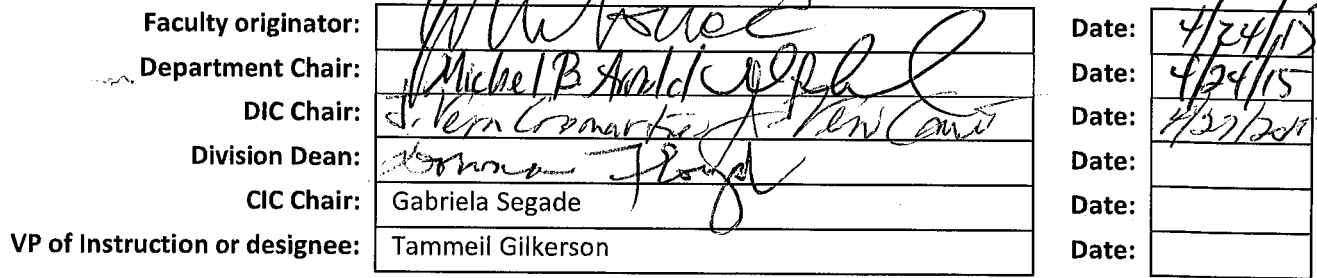 Faculty originator: Date: 4/24/15
Department Chair: Michel B. Arnold Date: 4/24/15
DIC Chair: J. Vern Cromartie Date:
Division Dean: Floyd Date:
CIC Chair: Gabriela Segade Date:
VP of Instruction or designee: Tammeil Gilkerson Date: